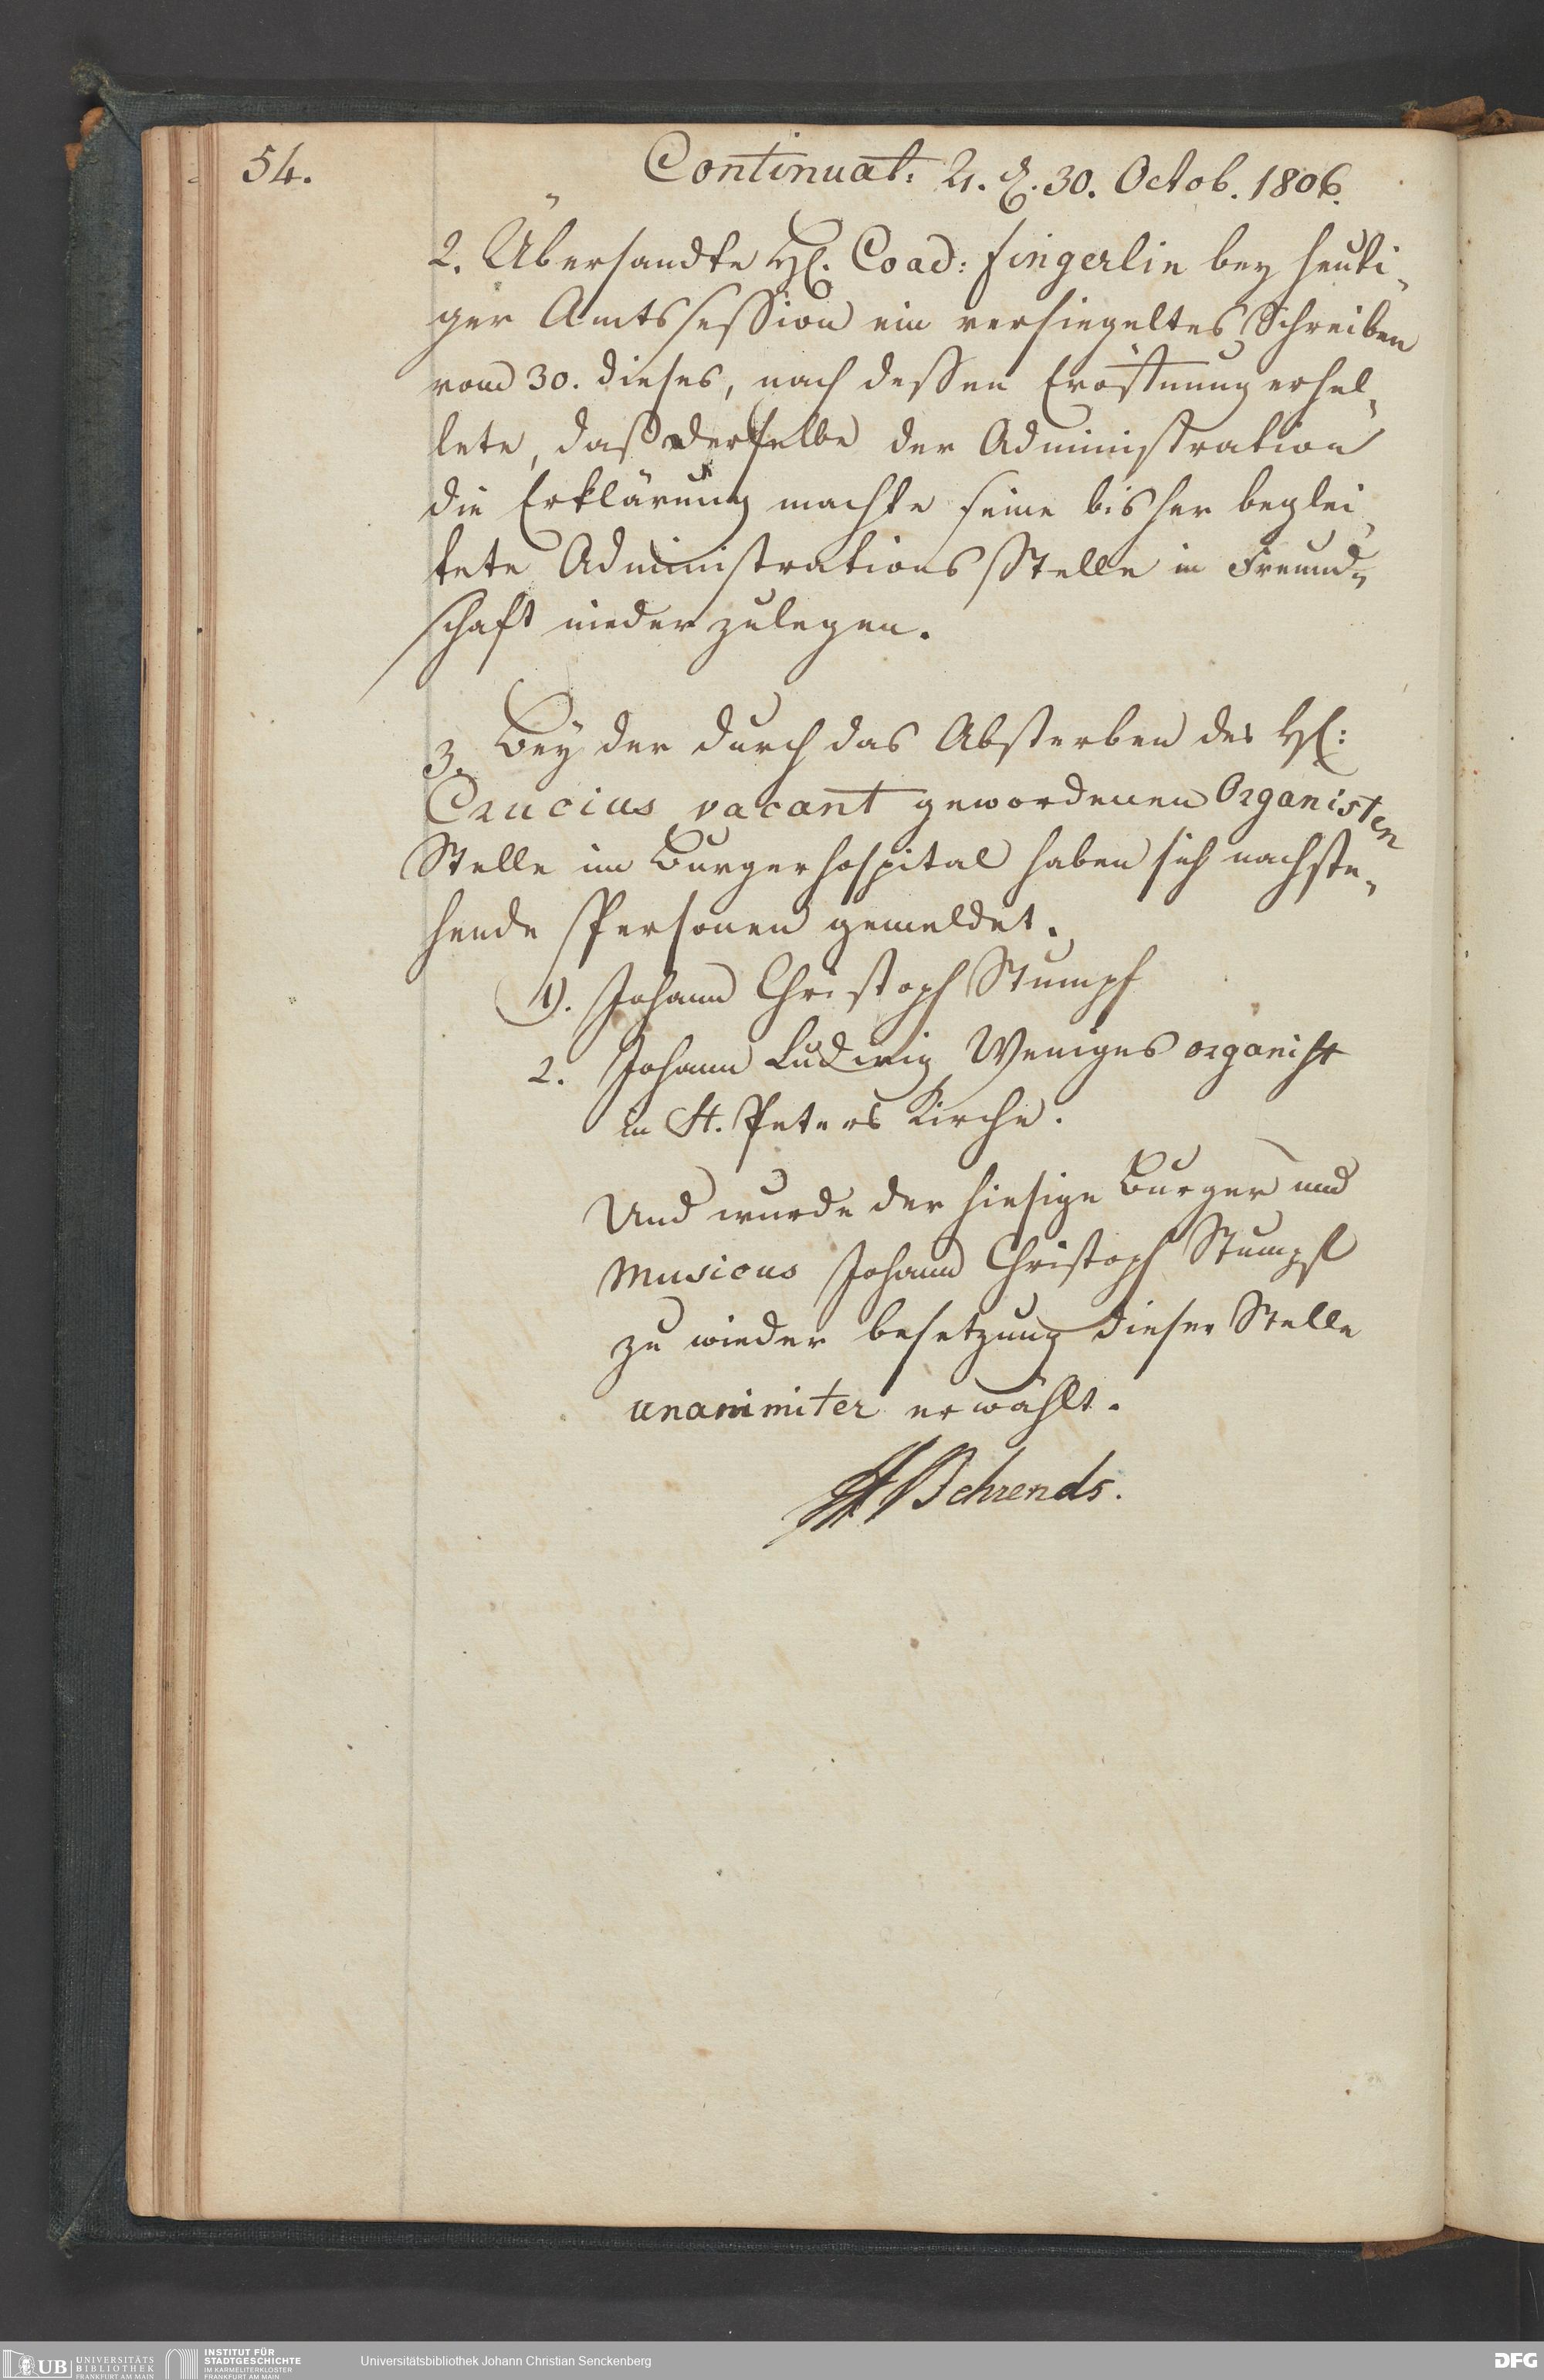 54.
Continuat: 21. d. 30. Octob. 1806.
2. Übersandte H. Coad: Fingerlin bey heuti-
ger Amtssession ein versiegeltes Schreiben
vom 30. dieses, nach dessen Eröffnung erhel-
lete, daß derselbe der Administration
die Erklärung machte seine bisher beglei-
tete Administrations Stelle in Freund-
schaft nieder zulegen.
3. Bey der durch das Absterben des H:
Crucius vacant gewordenen Organisten
Stelle im Burgerhospital haben sich nachste-
hende Personen gemeldet.
1). Johann Christoph Stumpf
2. Johann Ludwig Weniges organist
in St. Peters Kirche.
Und wurde der hiesige Burger und
Musicus Johann Christoph Stumpf
zu wieder besetzung dieser Stelle
unanimiter erwählt.
Behrends.
UB UNIVERSITÄTS
BIBLIOTHEK
FRANKFURT AM MAIN
INSTITUT FÜR
STADTGESCHICHTE
IM KARMELITERKLOSTER
FRANKFURT AM MAIN
Universitätsbibliothek Johann Christian Senckenberg
DFG